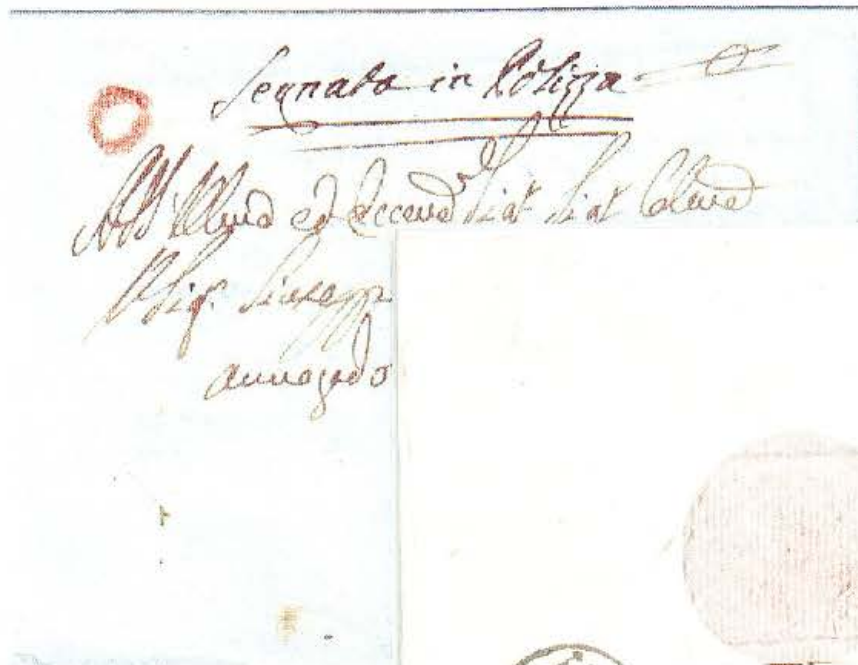 Segnata in Polizza
All' Illmo ed Eccemo Sigr Sigr Colmo
Il Sigr Giusepp
avvogado